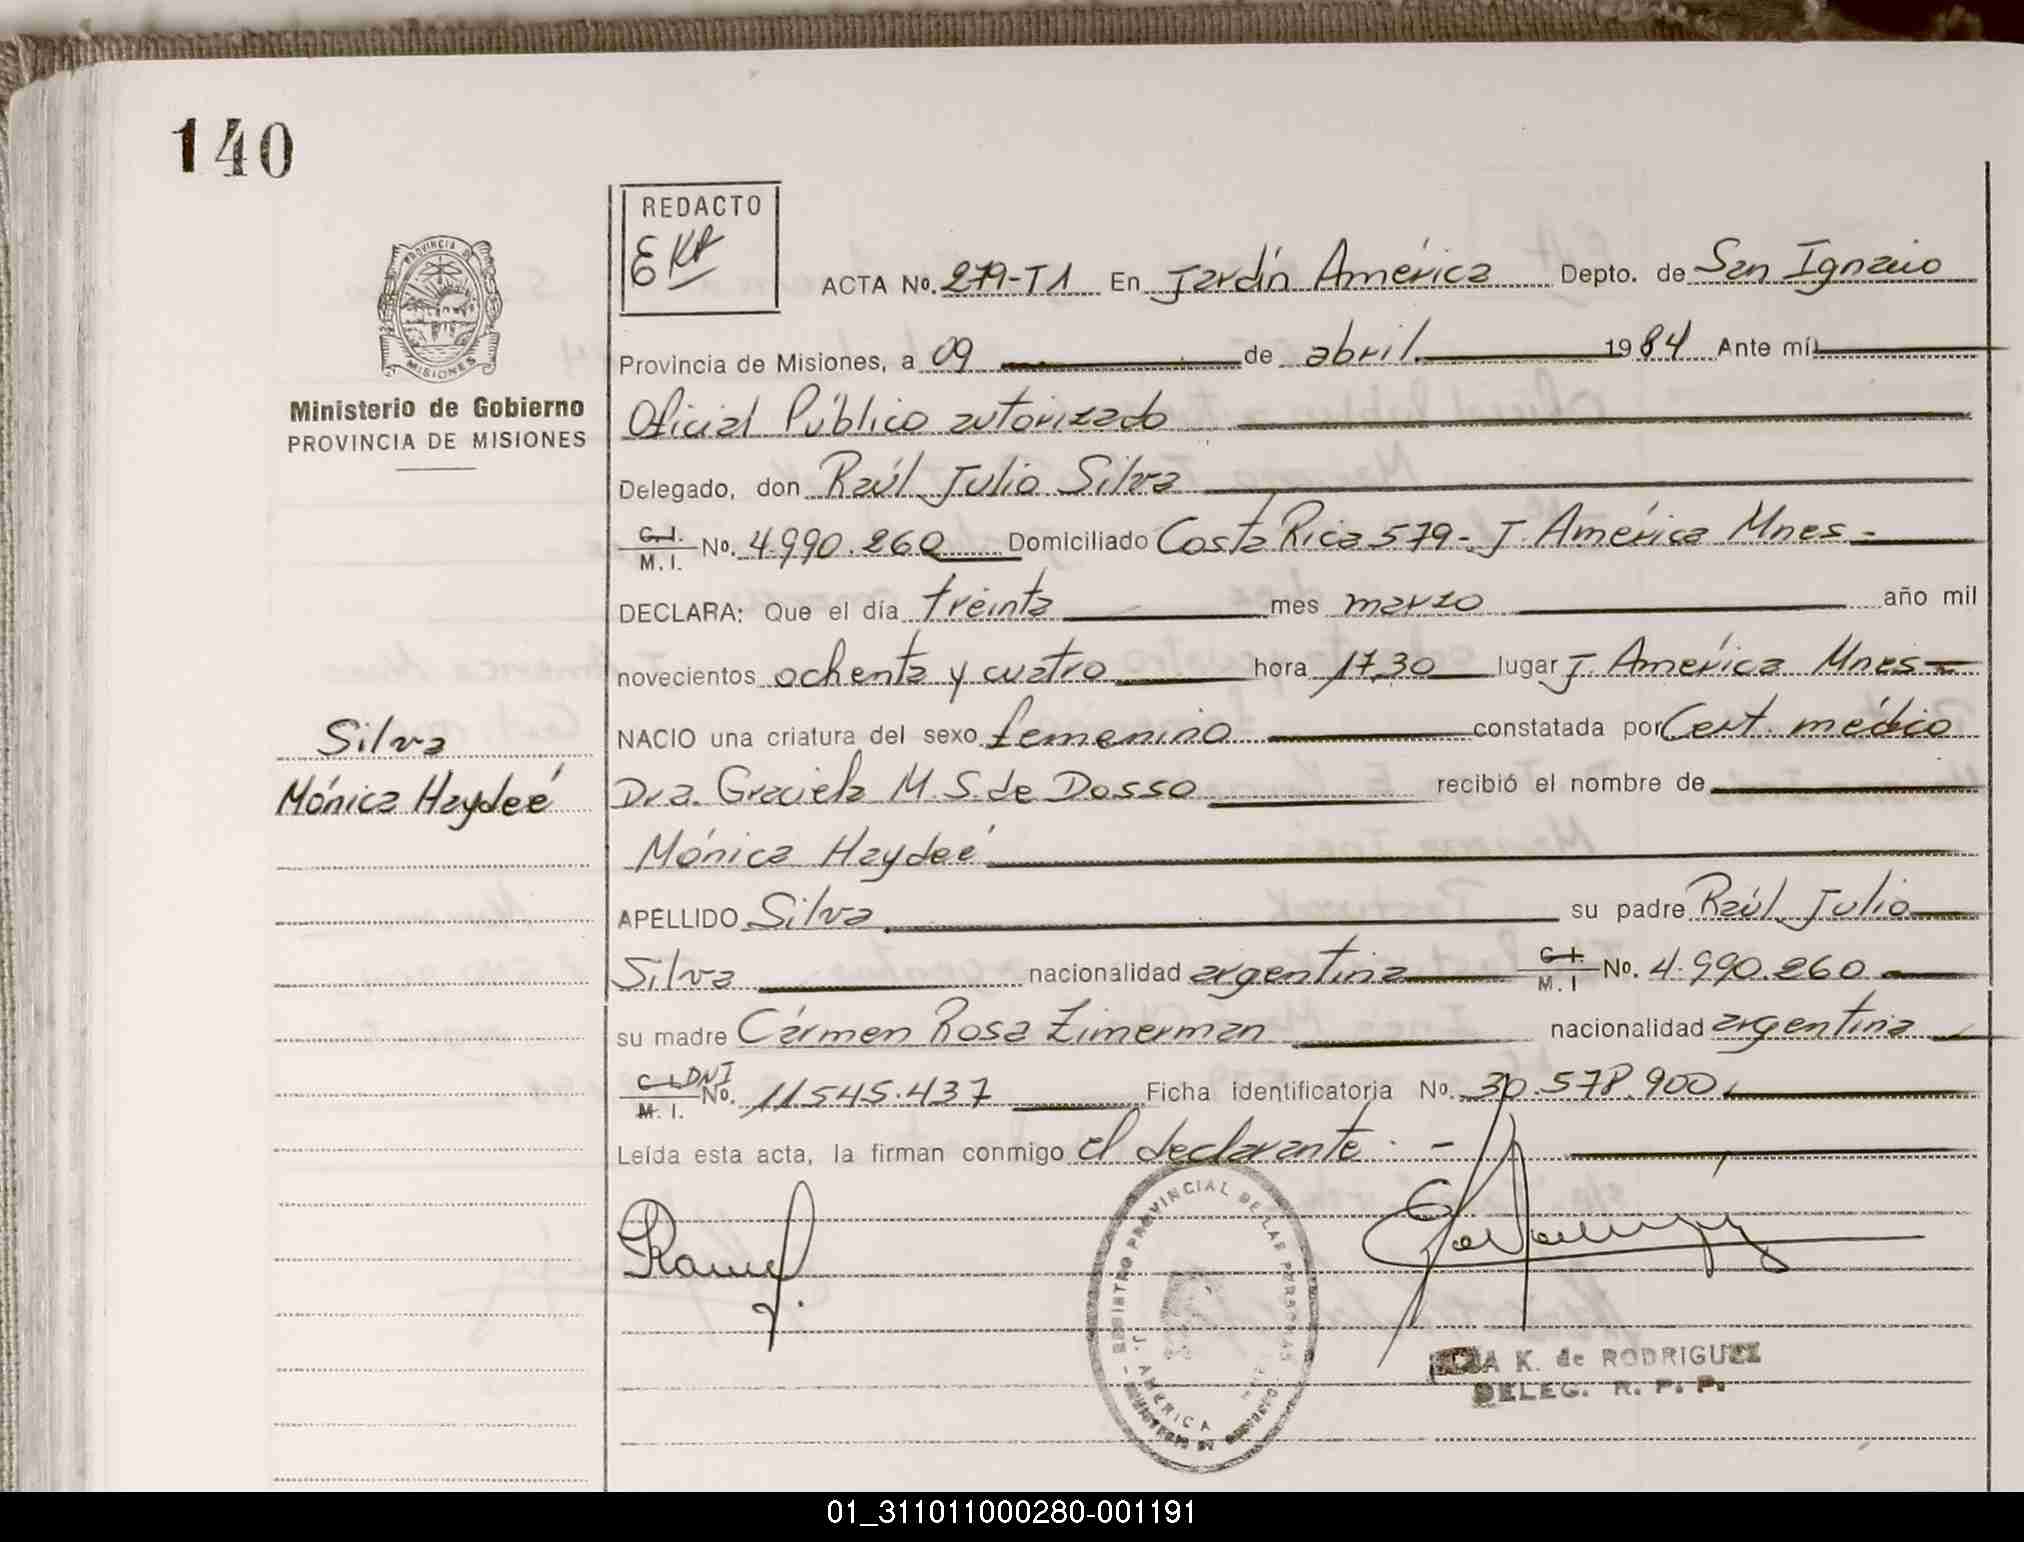 140
REDACTO
EKR
ACTA No. 279-T1 En Jardín América Depto. de San Ignacio
PROVINCIA DE
MISIONES
Provincia de Misiones, a 09 de abril 1984 Ante mí
Ministerio de Gobierno
PROVINCIA DE MISIONES
Oficial Público autorizado
Delegado, don Raúl Julio Silva
C.I.
M.I. No. 4.990.260 Domiciliado Costa Rica 579- J. América Mnes-
DECLARA: Que el día treinta mes marzo año mil
novecientos ochenta y cuatro hora 17,30 lugar J. América Mnes-
Silva
NACIO una criatura del sexo femenino constatada por Cert. médico
Mónica Haydeé
Dra. Graciela M. S. de Dosso recibió el nombre de
Mónica Haydeé
APELLIDO Silva su padre Raúl Julio
Silva nacionalidad argentina C.I.
M.I No. 4.990.260
su madre Cármen Rosa Zimerman nacionalidad argentina
C.I. DNI
M.I. No. 11545.437 Ficha identificatoria No. 30.578.900
Leída esta acta, la firman conmigo el declarante.-
REGISTRO PROVINCIAL DE LAS PERSONAS
J. AMERICA
A K. de RODRIGUEZ
DELEG. R. P. P.
01_311011000280-001191